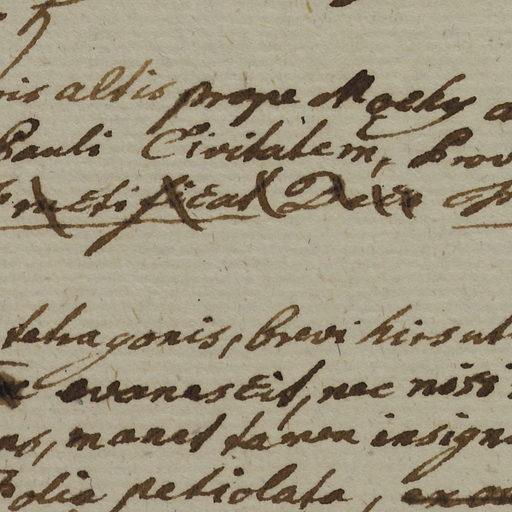 ris altis prope Mogky a
Pauli Civitatem, Prov
Fructificat Dece
tetragonis, brevi hirsut
evanescit, nec nisi
ns, manet tamen insign
Folia petiolata,